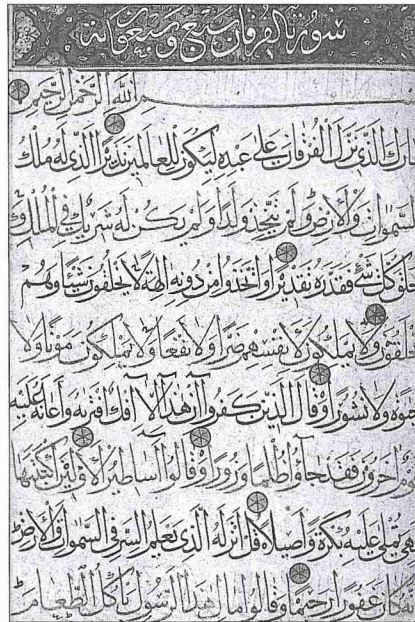 سورة الفرقان سبع وسبعون آية
بسم الله الرحمن الرحيم
تبارك الذي نزل الفرقان على عبده ليكون للعالمين نذيرا الذي له ملك
السموات والارض ولم يتخذ ولدا ولم يكن له شريك في الملك و
خلق كل شئ فقدره تقديرا واتخذوا من دونه الهة لا يخلقون شيئا وهم
يخلقون ولا يملكون لانفسهم ضرا ولا نفعا ولا يملكون موتا ولا
حيوة ولا نشورا وقال الذين كفروا ان هذا الا افك افتريه واعانه عليه
قوم اخرون فقد جاؤا ظلما وزورا وقالوا اساطير الاولين اكتتبها
فهي تملى عليه بكرة واصيلا قل انزله الذي يعلم السر في السموات والارض
انه كان غفورا رحيما وقالوا مال هذا الرسول ياكل الطعام